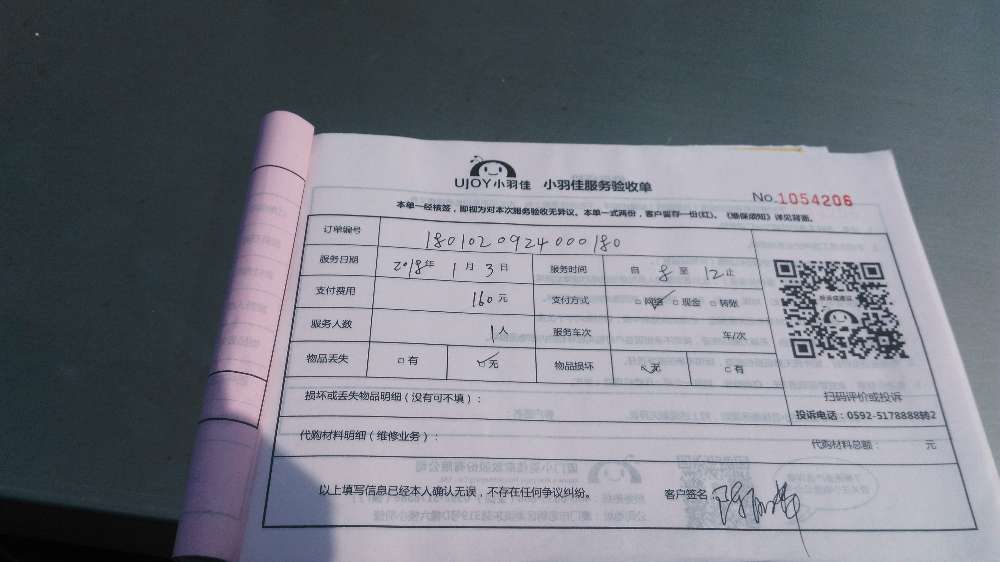 UJOY小羽佳 小羽佳服务验收单
No.1054206
本单一经核签，即视为对本次服务验收无异议。本单一式两份，客户留存一份(红)。《维保须知》详见背面。
订单编号 1801020924000180
服务日期 2018年 1月 3日 服务时间 自 8 至 12 止
支付费用 160元 支付方式 □网络 □现金 □转账
服务人数 1人 服务车次 车/次
物品丢失 □有 □无 物品损坏 □无 □有
损坏或丢失物品明细（没有可不填）：
扫码评价或投诉
投诉电话：0592-5178888转2
代购材料明细（维修业务）： 代购材料总额： 元
以上填写信息已经本人确认无误，不存在任何争议纠纷。 客户签名